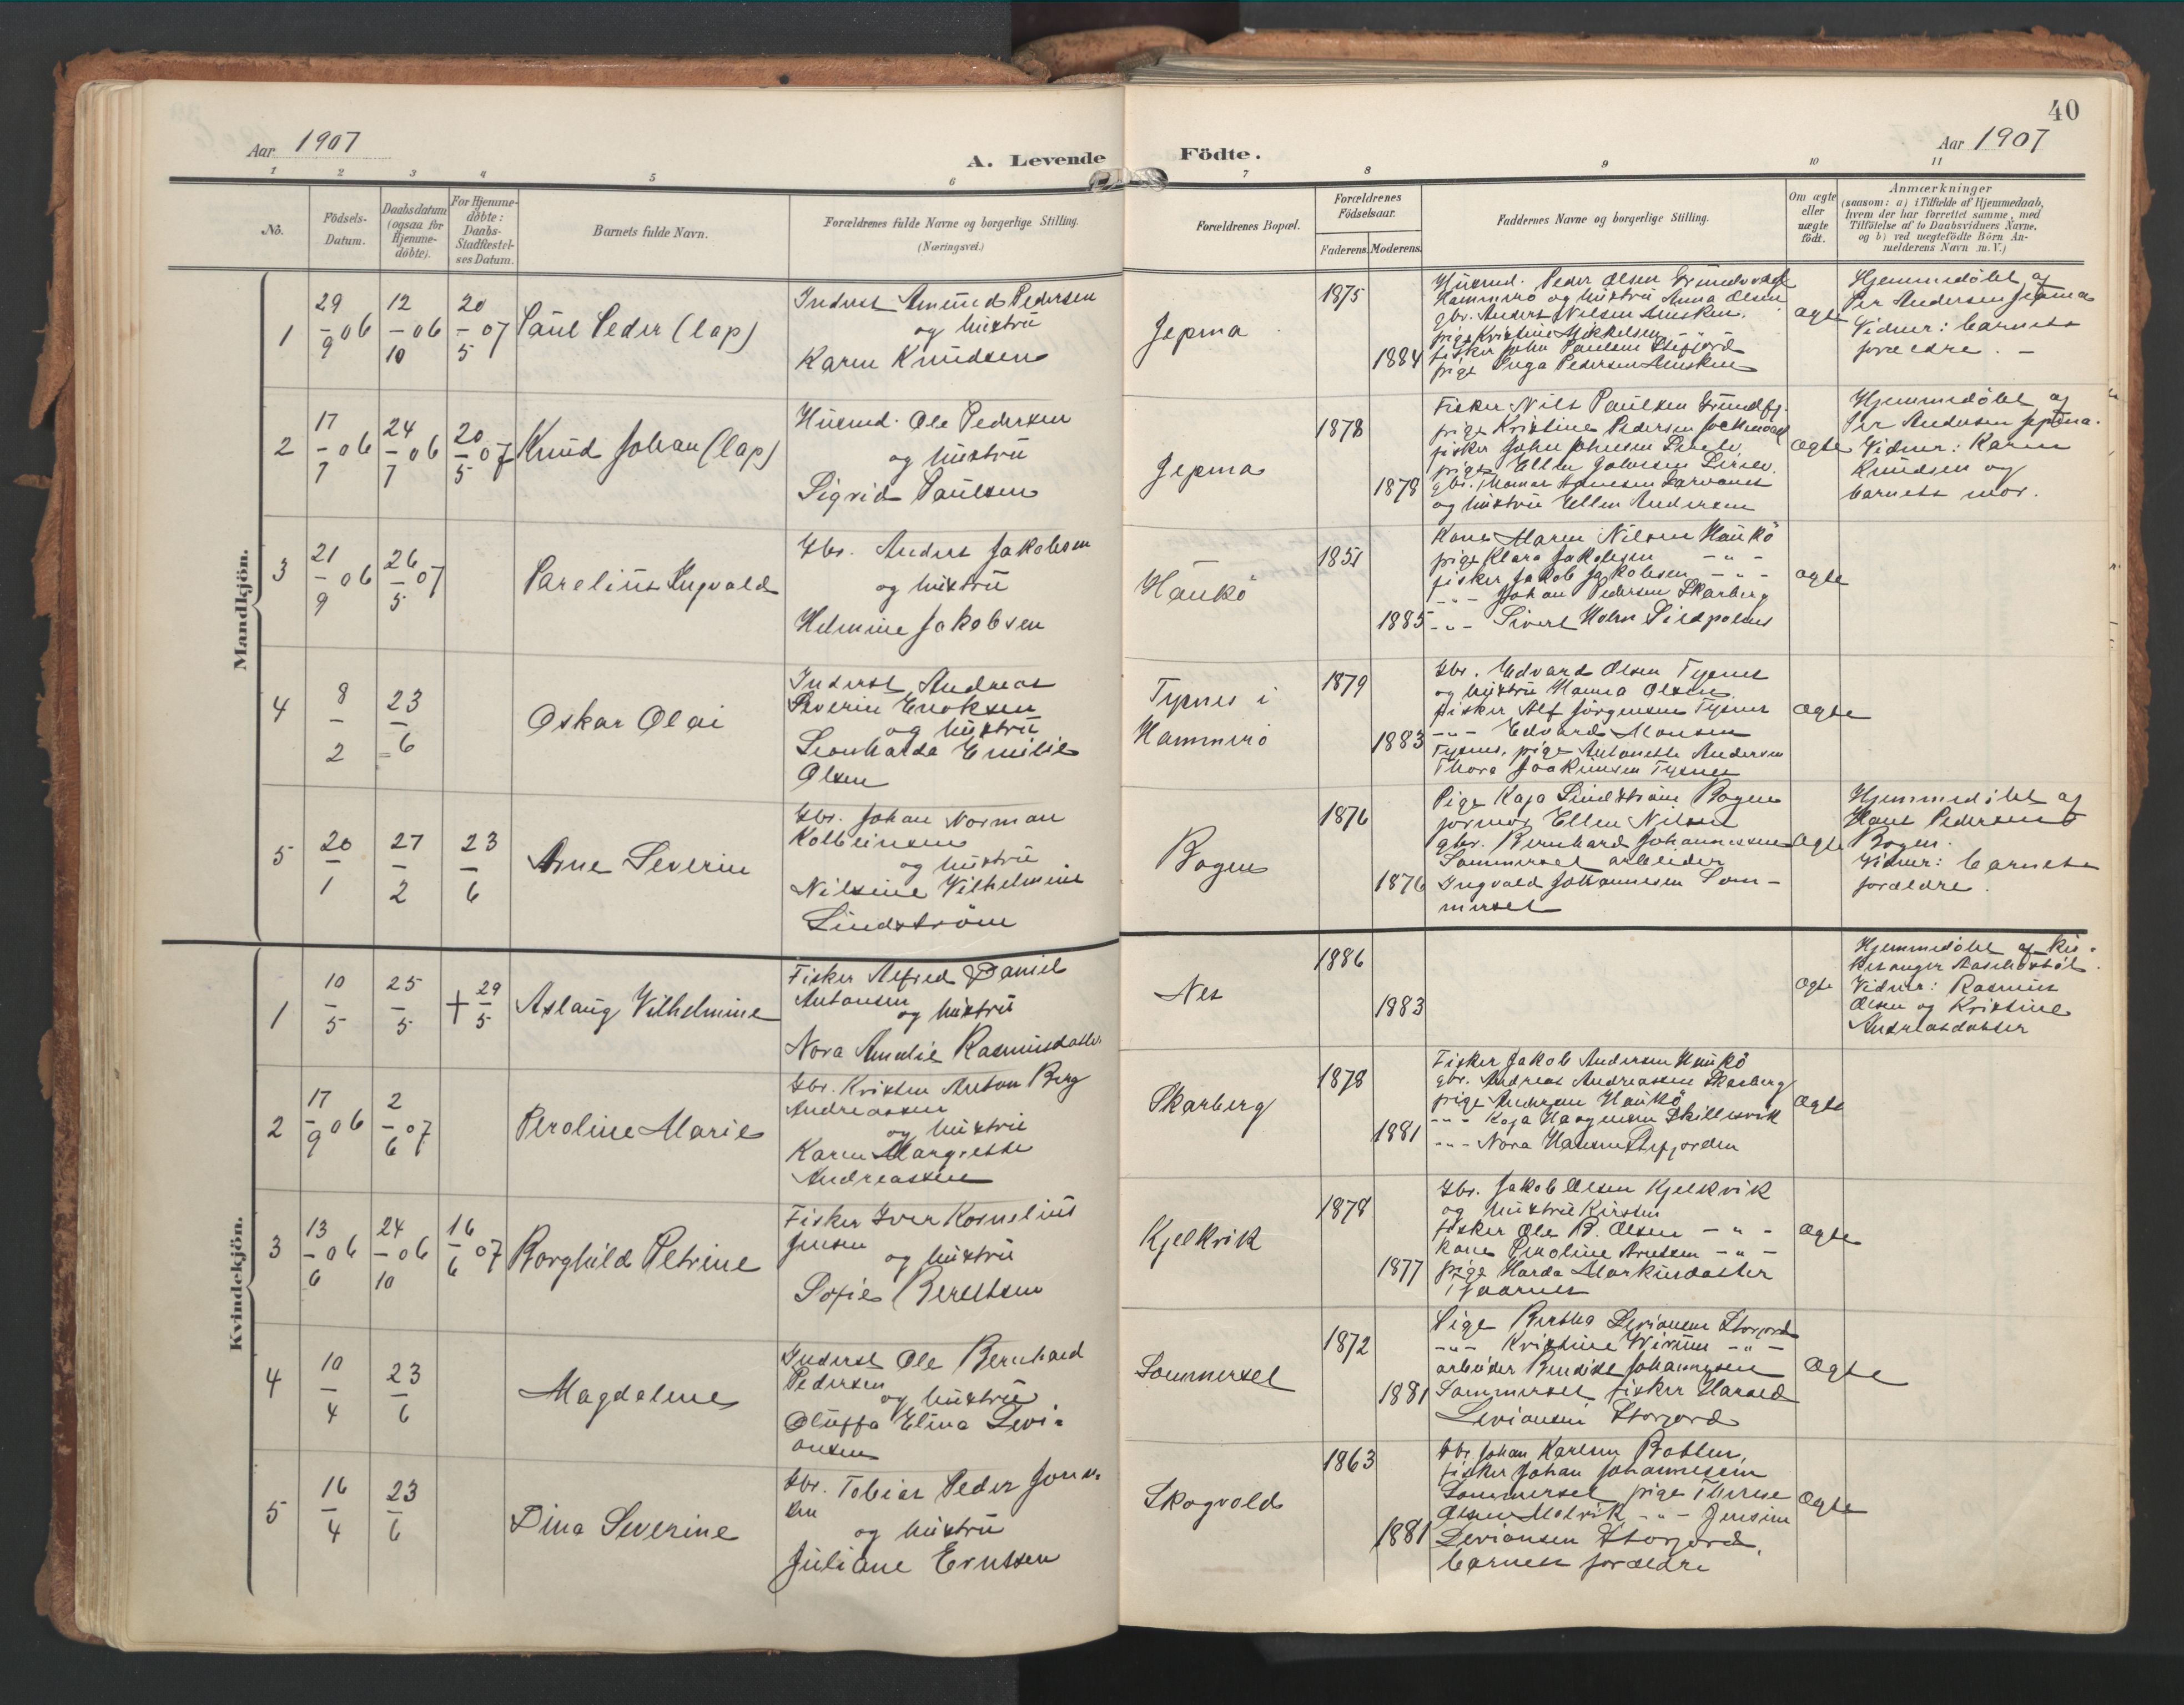 40
Aar 1907
A. Levende
Födte.
Aar 1907
1 2 3 4 5 6 7 8 9 10 11
No.
Födsels-
Datum.
Daabsdatum
(ogsaa for
Hjemme-
döbte).
For Hjemme-
döbte:
Daabs-
Stadfæstel-
ses Datum.
Barnets fulde Navn.
Forældrenes fulde Navne og borgerlige Stilling.
(Næringsvei.)
Forældrenes Bopæl.
Forældrenes
Födselsaar.
Faderens. Moderens.
Faddernes Navne og borgerlige Stilling.
Om ægte
eller
uægte
födt.
Anmærkninger
(saasom: a) i Tilfælde af Hjemmedaab,
hvem der har forrettet samme, med
Tilföielse af to Daabsvidners Navne,
og b) ved uægtefödte Börn An-
melderens Navn m. V.)
Mandkjön.
1
29/9 06
12/10 06
20/5 07
Paul Peder (lap)
Inderst Amund Pedersen
og hustru
Karen Knudsen
Jepma
1875
1884
Husmd. Peder Olsen
Hammerö og hustru Anna Olsen
gbr. Anders Nilsen
pige Kristine Mikkelsen
fisker John Paulsen
pige Inga Pedersen
ægte
Hjemmedöbt af
Per Andersen Jepma
Vidner: barnets
forældre. –
2
17/7 06
24/7 06
20/5 07
Knud Johan (lap)
Husmd. Ole Pedersen
og hustru
Sigrid Paulsen
Jepma
1878
1878
Fisker Nils Paulsen
pige Kristine Pedersen
fisker John Johnsen
pige Ellen
gbr. Thomas
og hustru Ellen Andersen
ægte
Hjemmedöbt af
Per Andersen Jepma.
Vidner: Karen
Knudsen og
barnets mor.
3
21/9 06
26/5 07
Parelius Ingvald
Gbr. Anders Jakobsen
og hustru
Helmine Jakobsen
Haukö
1851
1885
Kone Maren Nilsen Haukö
pige Klara Jakobsen – " –
fisker Jakob Jakobsen – " –
– " – Johan Pedersen Skarberg
– " – Sivert Holm
ægte
4
8/2
23/6
Oskar Olai
Inderst Andreas
Severin Enoksen
og hustru
Leonharda Emilie
Olsen
Tysnes i
Hammerö
1879
1883
Gbr. Edvard Olsen Tysnes
og hustru Hanna Olsen.
fisker Alf Jörgensen Tysnes
– " – Edvard Monsen
Tysnes, pige Antonette Andersen
Thora Joakimsen Tysnes
ægte
5
20/1
27/2
23/6
Arne Severin
Gbr. Johan Norman
Kolbeinsen
og hustru
Nilsine Vilhelmine
Lindström
Bogen
1876
1876
Pige Kaja Lindström Bogen
jormor Ellen Nilsen
gbr. Bernhard Johannessen
Sommersel arbeider
Ingvald Johannesen Som-
mersel
ægte
Hjemmedöbt af
Hans Pedersen
Bogen.
Vidner: barnets
forældre.
Kvindekjön.
1
10/5
25/5
+ 29/5
Aslaug Vilhelmine
Fisker Alfred Daniel
Antonsen
og hustru
Nora Amalie Rasmusdatter
Nes
1886
1883
ægte
Hjemmedöbt af kir-
kesanger
Vidner: Rasmus
Olsen og Kristine
Andreasdatter
2
17/9 06
2/6 07
Peroline Marie
Gbr. Kristen Anton Berg
Andreassen
og hustru
Karen Margrethe
Andreassen
Skarberg
1878
1881
Fisker Jakob Andersen Haukö
gbr. Andreas Andreassen Skarberg
pige Andersen Haukö
– " – Kaja
– " – Nora Hansen
ægte
3
13/6 06
24/10 06
16/6 07
Borghild Petrine
Fisker Iver Kornelius
Jensen
og hustru
Sofie Berntsen
Kjelkvik
1878
1877
Gbr. Jakob Olsen Kjelkvik
og hustru Kirsten
fisker Ole B. Olsen – " –
kone Peroline Arntsen – " –
pige Harda Markusdatter
ægte
4
10/4
23/6
Magdalene
Inderst Ole Bernhard
Pedersen
og hustru
Oluffa Elina Levi-
ansen
Sommersel
1872
1881
Pige Bertha Leviansen Storjord
– " – Kristine – " –
arbeider Benedikt Johannesen
Sommersel, fisker Harald
Leviansen Storjord
ægte
5
16/4
23/6
Dina Severine
Gbr. Tobias Peder Jon-
sen
og hustru
Juliane Erntsen
Skogvold
1863
1881
Gbr. Johan Karlsen Botten,
fisker Johan Johannesen
Sommersel, pige Therese
Olsen – " – Jensine
Leviansen Storjord,
barnets forældre
ægte